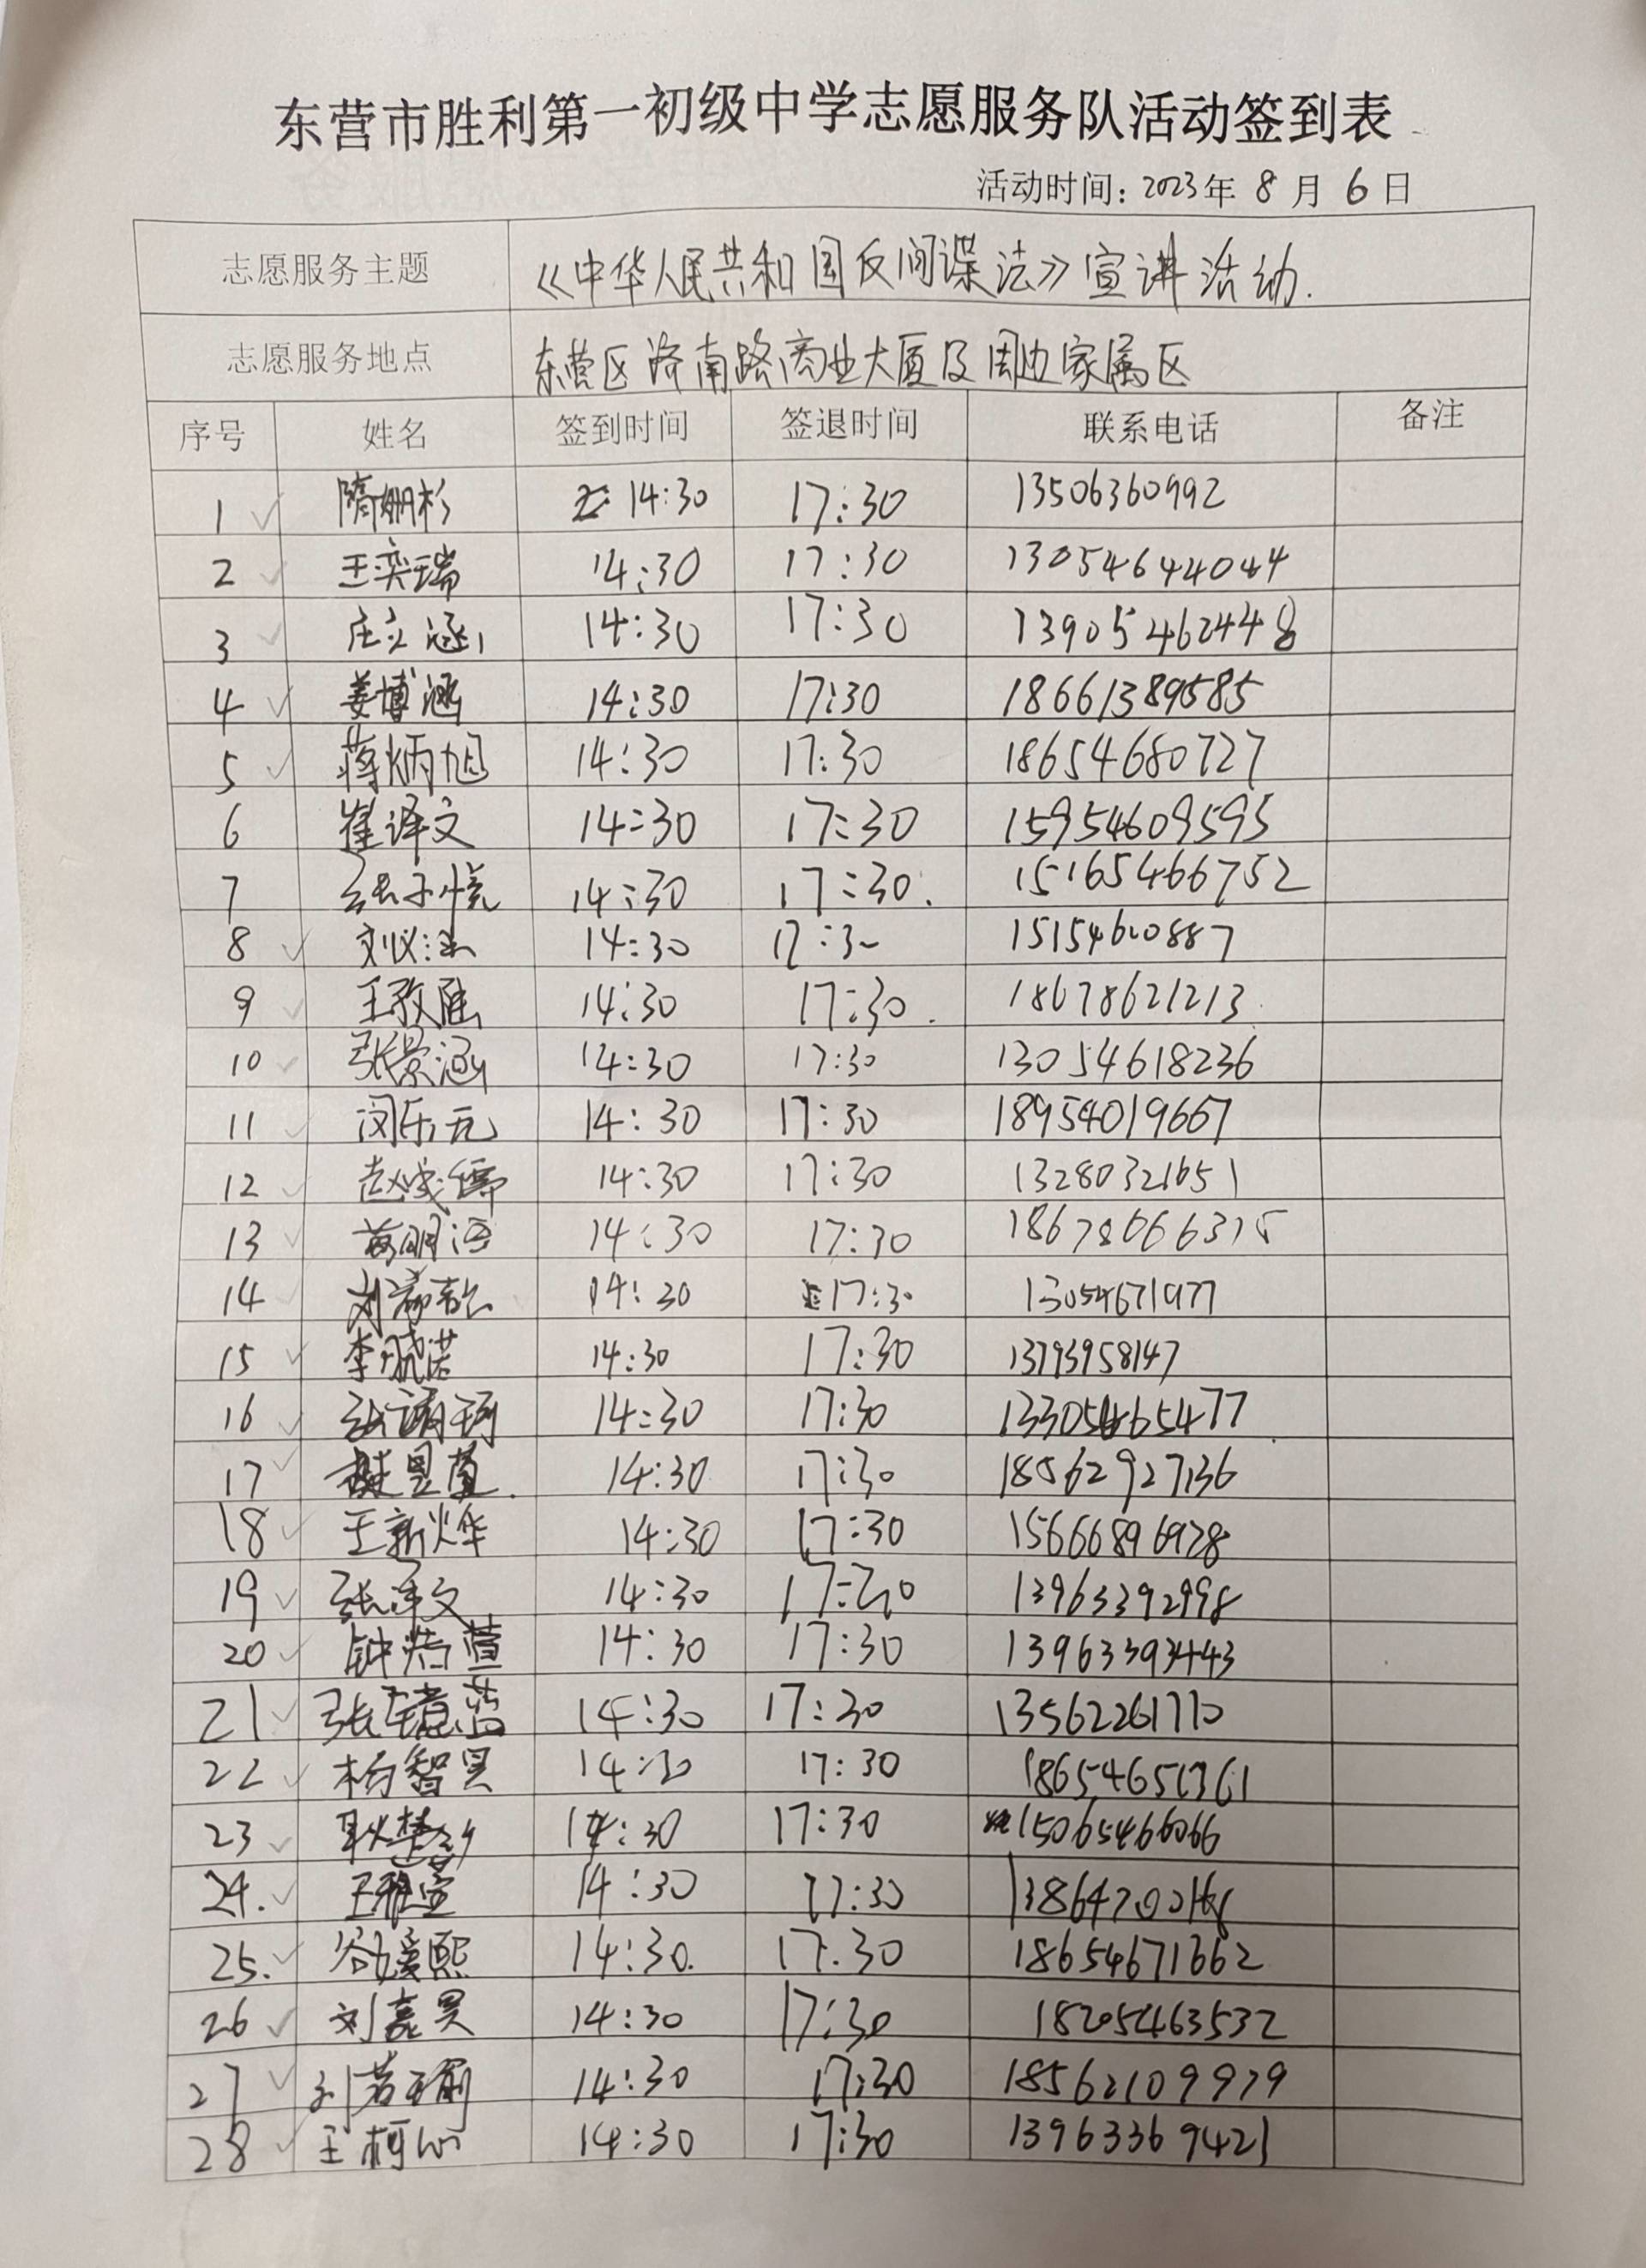 东营市胜利第一初级中学志愿服务队活动签到表
活动时间：2023年 8 月 6 日
志愿服务主题 《中华人民共和国反间谍法》宣讲活动.
志愿服务地点 东营区济南路商业大厦及周边家属区
序号 姓名 签到时间 签退时间 联系电话 备注
1 隋姗杉 14:30 17:30 13506360992
2 王奕瑞 14:30 17:30 13054644044
3 庄文涵 14:30 17:30 13905462448
4 姜博涵 14:30 17:30 18661389585
5 蒋炳旭 14:30 17:30 18654680727
6 崔译文 14:30 17:30 15954609595
7 张子悦 14:30 17:30. 15165466752
8 14:30 17:30 15154600887
9 14:30 17:30. 18678621213
10 张景涵 14:30 17:30 13054618236
11 闵乐元 14:30 17:30 18954019667
12 14:30 17:30 13280321651
13 14:30 17:30
14 14:30 17:30 13054671977
15 14:30 17:30 13793958147
16 14:30 17:30 13305465477
17 14:30 17:30 18562927136
18 王新烨 14:30 17:30 15666896928
19 张泽文 14:30 17:30 13963392998
20 14:30 17:30
21 14:30 17:30 13562261710
22 杨智昊 14:30 17:30 18654651361
23 14:30 17:30 15065466066
24. 王雅萱 14:30 17:30
25. 谷媛熙 14:30. 17:30 18654671662
26 刘嘉昊 14:30 17:30 18205463532
27 刘若瑜 14:30 17:30 18562109979
28 王柯心 14:30 17:30 13963369421